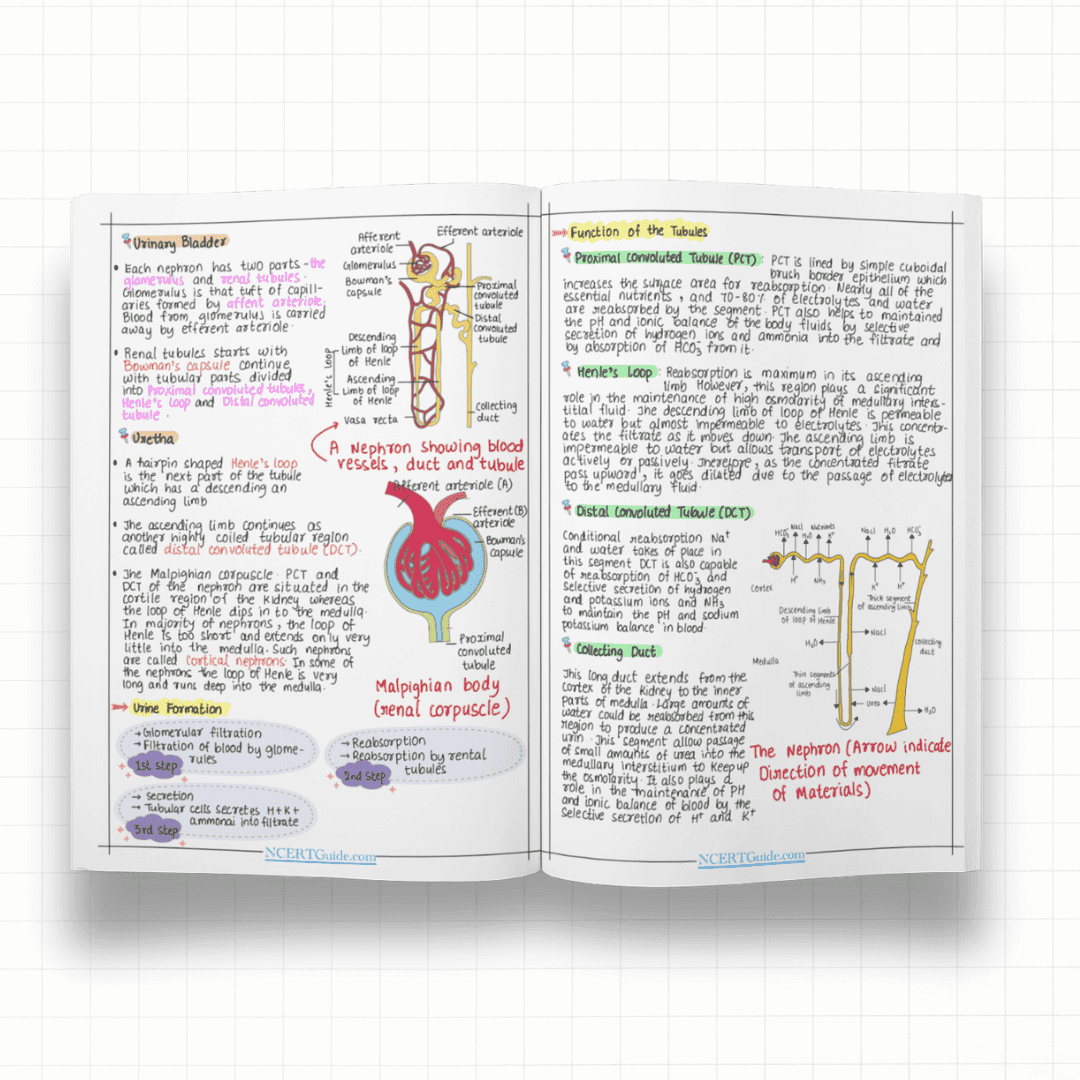 Urinary Bladder
• Each nephron has two parts - the
glamerulus and renal tubules.
Glomerulus is that tuft of capill-
aries formed by affent arteriole.
Blood from glomerulus is carried
away by efferent arteriole.
• Renal tubules starts with
Bowman's capsule continue
with tubular parts divided
into Proximal convoluted tubules,
Henle's Loop and Distal convoluted
tubule.
Uretha
• A tairpin shaped Henle's loop
is the next part of the tubule
which has a descending an
ascending limb
• The ascending limb continues as
another highly coiled tubular region
called distal convoluted tubule (DCT).
• The Malpighian corpuscle. PCT and
DCT of the nephron are situated in the
cortile region of the kidney whereas
the loop of Henle dips in to the medulla.
In majority of nephrons, the loop of
Henle is too short and extends only very
little into the medulla. Such nephrons
are called Cortical nephrons. In some of
the nephrons the loop of Henle is very
long and runs deep into the medulla.
Afferent
arteriole
Efferent arteriole
Glomerulus
Bowman's
capsule
Proximal
convoluted
tubule
Distal
convoluted
tubule
Henle's Loop
Descending
limb of loop
of Henle
Ascending
Limb of loop
of Henle
Vasa recta
Collecting
duct
A Nephron showing blood
vessels, duct and tubule
Afferent arteriole (A)
Efferent (B)
arteriole
Bowman's
capsule
Proximal
convoluted
tubule
Malpighian body
(renal corpuscle)
Urine Formation
→ Glomerular filtration
→ Filtration of blood by glome-
rules
1st step
→ Reabsorption
→ Reabsorption by rental
tubules
2nd step
→ Secretion
→ Tubular cells secretes H+K+
ammonai into filtrate
3rd step
NCERTGuide.com
Function of the Tubules
Proximal Convoluted Tubule (PCT) PCT is lined by simple cuboidal
brush border epithelium which
increases the surface area for reabsorption. Nearly all of the
essential nutrients, and 70-80% of electrolytes and water
are reabsorbed by the segment. PCT also helps to maintained
the pH and ionic balance of the body fluids by selective
secretion of hydrogen ions and ammonia into the filtrate and
by absorption of HCO₃⁻ from it.
Henle's Loop Reabsorption is maximum in its ascending
limb However, this region plays a significant
role in the maintenance of high osmolarity of medullary inters-
titial fluid. The descending limb of loop of Henle is permeable
to water but almost impermeable to electrolytes. This concentr-
ates the filtrate as it moves down. The ascending limb is
impermeable to water but allows transport of electrolytes
actively or passively. Therefore, as the concentrated fitrate
pass upward, it goes diluted due to the passage of electrolytes
to the medullary fluid.
Distal Convoluted Tubule (DCT)
Conditional reabsorption Na⁺
and water takes of place in
this segment DCT is also capable
of reabsorption of HCO₃⁻ and
Selective secretion of hydrogen
and potassium ions and NH₃
to maintain the pH and sodium
potassium balance in blood.
Collecting Duct
This long duct extends from the
cortex of the kidney to the inner
parts of medulla. Large amounts of
water could be reabsorbed from this
region to produce a concentrated
urin. This segment allow passage
of small amounts of urea into the
medullary interstitium to keepup
the osmolarity. It also plays a
role in the maintenance of PH
and ionic balance of blood by the
Selective secretion of H⁺ and K⁺
HCO₃⁻ Nacl H₂O Nutrients K⁺
Nacl H₂O HCO₃⁻
H⁺ NH₃
K⁺ H⁺
Cortex
Thick segment
of ascending limb
Descending limb
of loop of Henle
H₂O
Nacl
collecting
duct
Medulla
Thin segments
of ascending
limb
Nacl
Urea
H₂O
The Nephron (Arrow indicate
Direction of movement
of Materials)
NCERTGuide.com